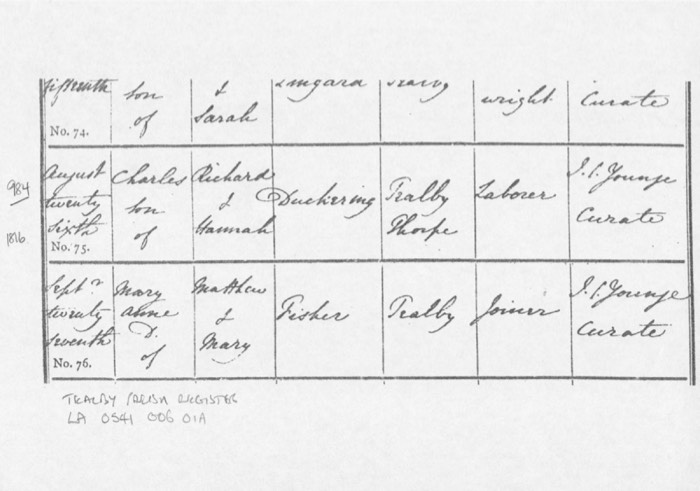 fifteenth son & Lingard wright Curate
of Sarah
No. 74.
August Charles Richard J. S. Younge
twenty son & Duckering Tealby Laborer Curate
sixth of Hannah Thorpe
No. 75.
984
1816
Septr Mary Matthew J. S. Younge
twenty Anne & Fisher Tealby Joiner Curate
seventh D. of Mary
No. 76.
TEALBY PARISH REGISTER
LA 0541 006 01A